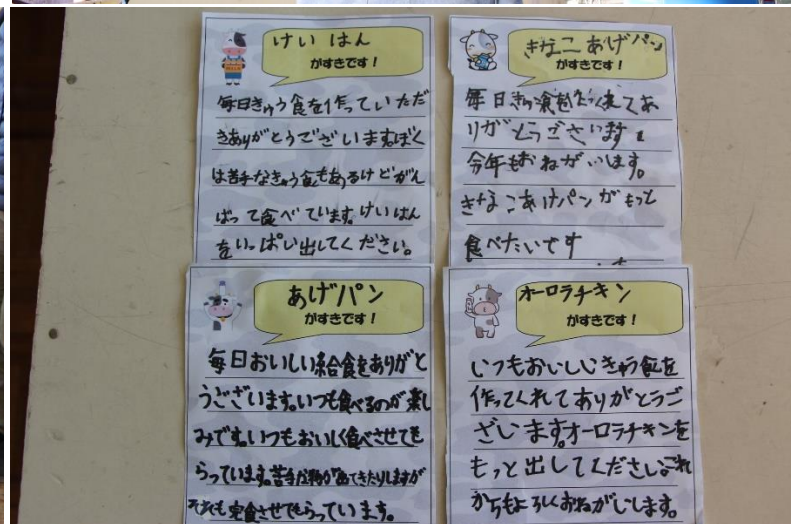 けいはん
がすきです!
毎日きゅう食を作っていただ
きありがとうございます。ぼく
は苦手なきゅう食もあるけどがん
ばって食べています。けいはん
をいっぱい出してください。
きなこあげパン
がすきです!
毎日きゅう食をつくってあ
りがとうございます。
今年もおねがいします。
きなこあげパンがもっと
食べたいです
あげパン
がすきです!
毎日おいしい給食をありがと
うございます。いつも食べるのが楽し
みです。いつもおいしく食べさせても
らっています。苦手な物がでてきたりしますが
それも完食させてもらっています。
オーロラチキン
がすきです!
いつもおいしいきゅう食を
作ってくれてありがとうご
ざいます。オーロラチキンを
もっと出してください。これ
からもよろしくおねがいします。